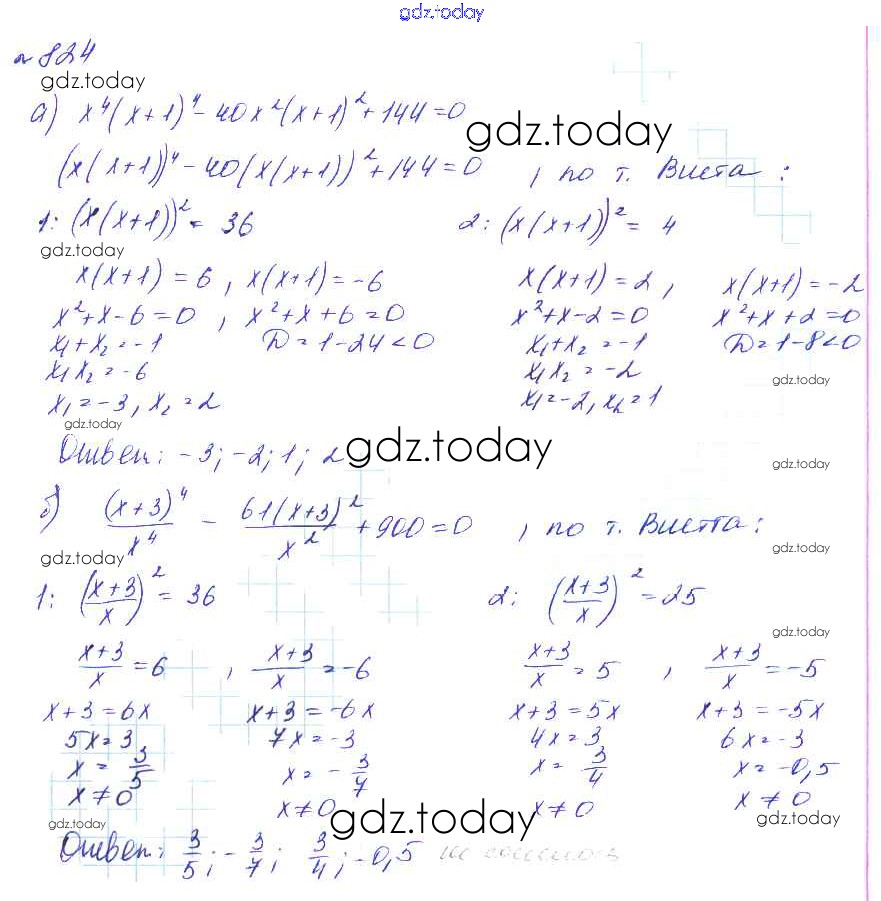 gdz.today
№ 824
gdz.today
а) x⁴(x+1)⁴ - 40x²(x+1)² + 144 = 0
gdz.today
(x(x+1))⁴ - 40(x(x+1))² + 144 = 0 , по т. Виета :
1: (x(x+1))² = 36 2: (x(x+1))² = 4
gdz.today
x(x+1) = 6 , x(x+1) = -6 x(x+1) = 2 , x(x+1) = -2
x²+x-6=0 , x²+x+6=0 x²+x-2=0 x²+x+2=0
x₁+x₂ = -1 D=1-24<0 x₁+x₂ = -1 D=1-8<0
x₁x₂ = -6 x₁x₂ = -2 gdz.today
x₁=-3, x₂=2 x₁=-2, x₂=1
gdz.today
Ответ: -3; -2; 1; 2 gdz.today gdz.today
б) (x+3)⁴/x⁴ - 61(x+3)²/x² + 900 = 0 , по т. Виетта:
gdz.today gdz.today
1: ((x+3)/x)² = 36 2: ((x+3)/x)² = 25
gdz.today
(x+3)/x = 6 , (x+3)/x = -6 (x+3)/x = 5 , (x+3)/x = -5
x+3=6x x+3=-6x x+3=5x x+3=-5x
5x=3 7x=-3 4x=3 6x=-3
x = 3/5 x = -3/7 x = 3/4 x=-0,5
x≠0 x≠0 x≠0 x≠0
gdz.today gdz.today gdz.today
Ответ: 3/5; -3/7; 3/4; -0,5